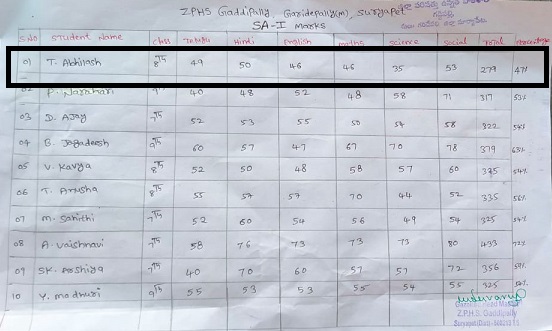 ZPHS Gaddipally, Garidepally(m), Suryapet
SA-I Marks
S.No Student Name Class Telugu Hindi English maths science social Total Percentage
01 T. Abhilash 8th 49 50 46 46 35 53 279 47%
02 P. Narahari 9th 40 48 52 48 58 71 317 53%
03 D. Ajay 7th 52 53 55 50 54 58 322 54%
04 B. Jagadeesh 9th 60 57 47 67 70 78 379 63%
05 V. Kavya 8th 52 50 48 58 57 60 325 54%
06 T. Anusha 8th 55 57 57 70 44 52 335 56%
07 M. Sahithi 7th 52 60 54 56 49 54 325 54%
08 A. Vaishnavi 7th 58 76 73 73 73 80 433 72%
09 SK. Arshiya 7th 40 70 60 57 57 72 356 59%
10 Y. Madhuri 9th 55 53 53 55 54 55 325
Gazetted Head Master
Z.P.H.S. Gaddipally